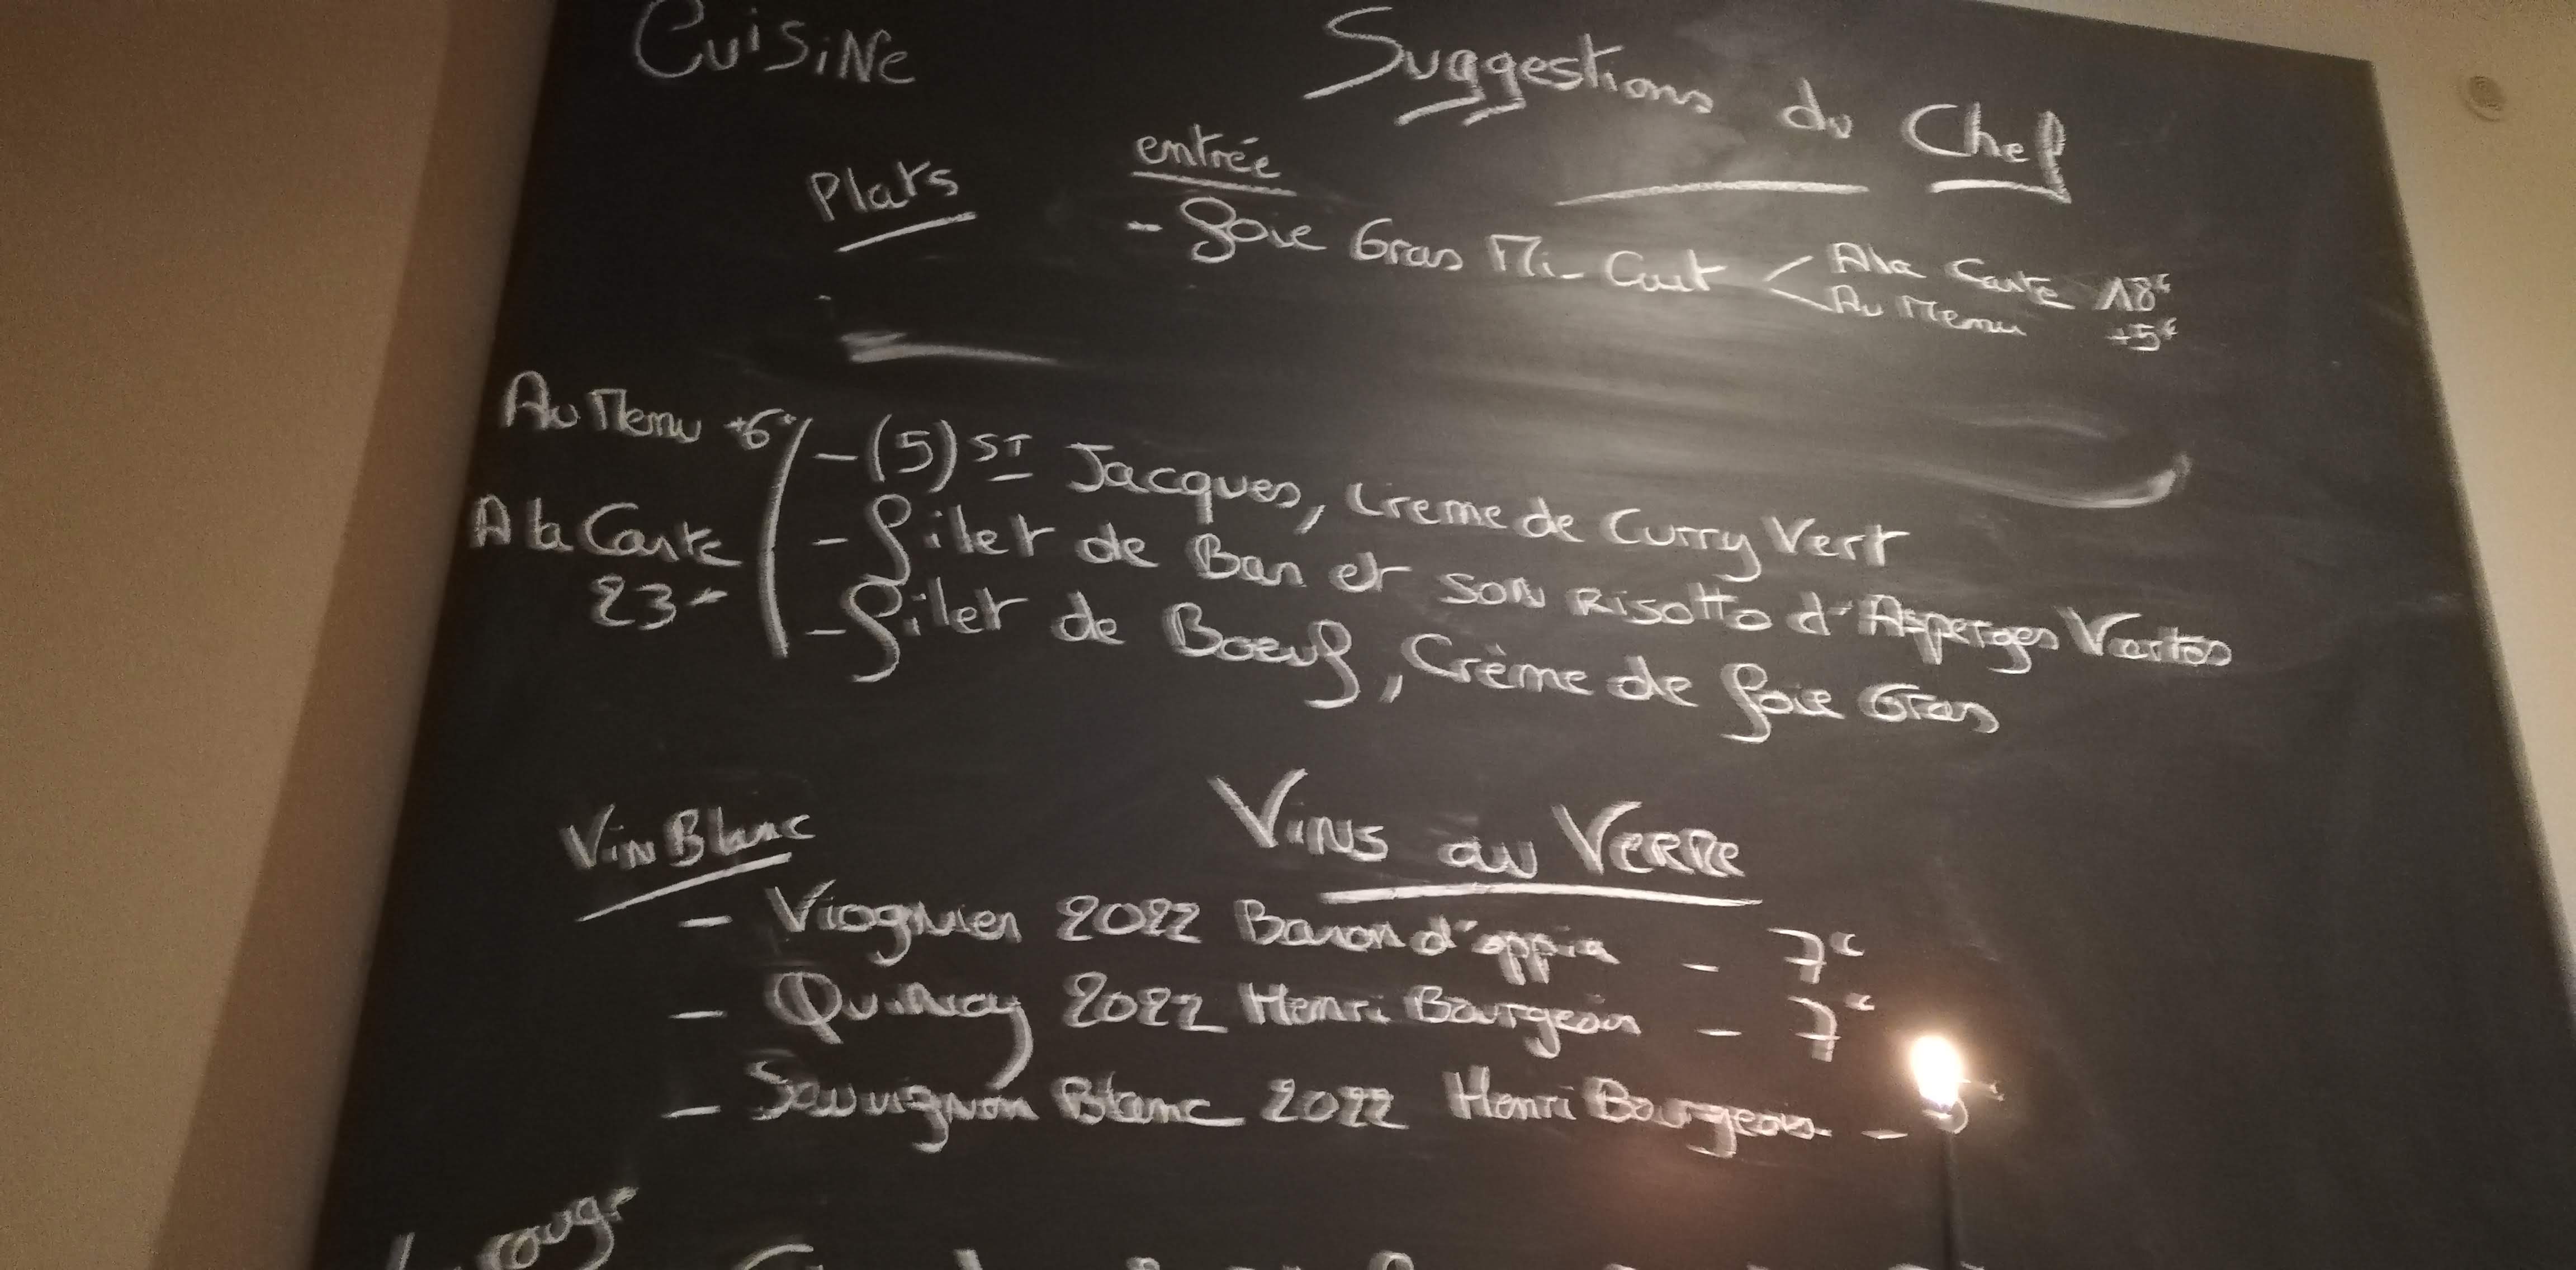 Cuisine
Suggestions du Chef
Plats
entrée
- Foie Gras Mi-Cuit < A la Carte 18€
Au Menu +5€
Au Menu +6€
A la Carte
23€
- (5) ST Jacques, Creme de Curry Vert
- Filet de Bar et son Risotto d'Asperges Vertes
- Filet de Boeuf, Crème de Foie Gras
Vins au Verre
Vin Blanc
- Viognier 2022 Baron d'appia - 7€
- Quincy 2022 Henri Bourgeois - 7€
- Sauvignon Blanc 2022 Henri Bourgeois -
rouge